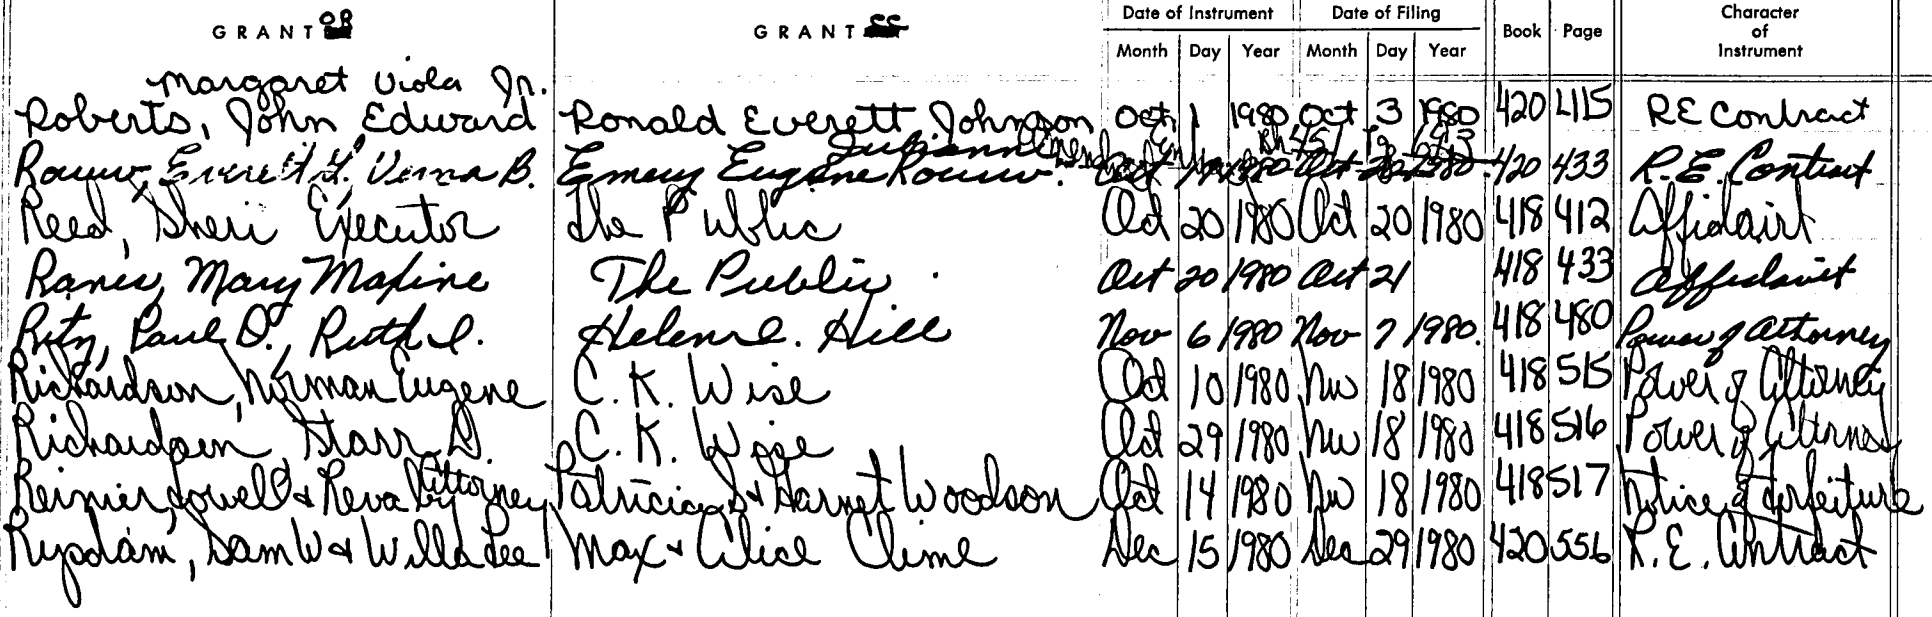 GRANTOR GRANTEE Date of Instrument Date of Filing Book Page Character of Instrument
Month Day Year Month Day Year
Margaret Viola Jr.
Roberts, John Edward Ronald Everett Johnson Oct 1 1980 Oct 3 1980 420 L115 RE Contract
Julianne Bk 451 Pg
Everett Y. Verna B. Emery Eugene Rouw. Oct 1980 Oct 1980 420 433 R.E. Contract
Reed, Sheri Executor The Public Oct 20 1980 Oct 20 1980 418 412 Affidavit
Mary Maxine The Public Oct 20 1980 Oct 21 418 433 Affidavit
Paul D., Ruth I. Helen L. Hill Nov 6 1980 Nov 7 1980. 418 480 Power of Attorney
Richardson, Norman Eugene C. K. Wise Oct 10 1980 Nov 18 1980 418 515 Power of Attorney
Richardson, Starr D. C. K. Wise Oct 29 1980 Nov 18 1980 418 516 Power of Attorney
Reimer, Lowell & Reva by Attorney Patricia S & Harvet Woodson Oct 14 1980 Nov 18 1980 418 517 Notice of Forfeiture
Rysdam, Sam W & Willa Lee Max & Alice Clime Dec 15 1980 Dec 29 1980 420 556 R.E. Contract